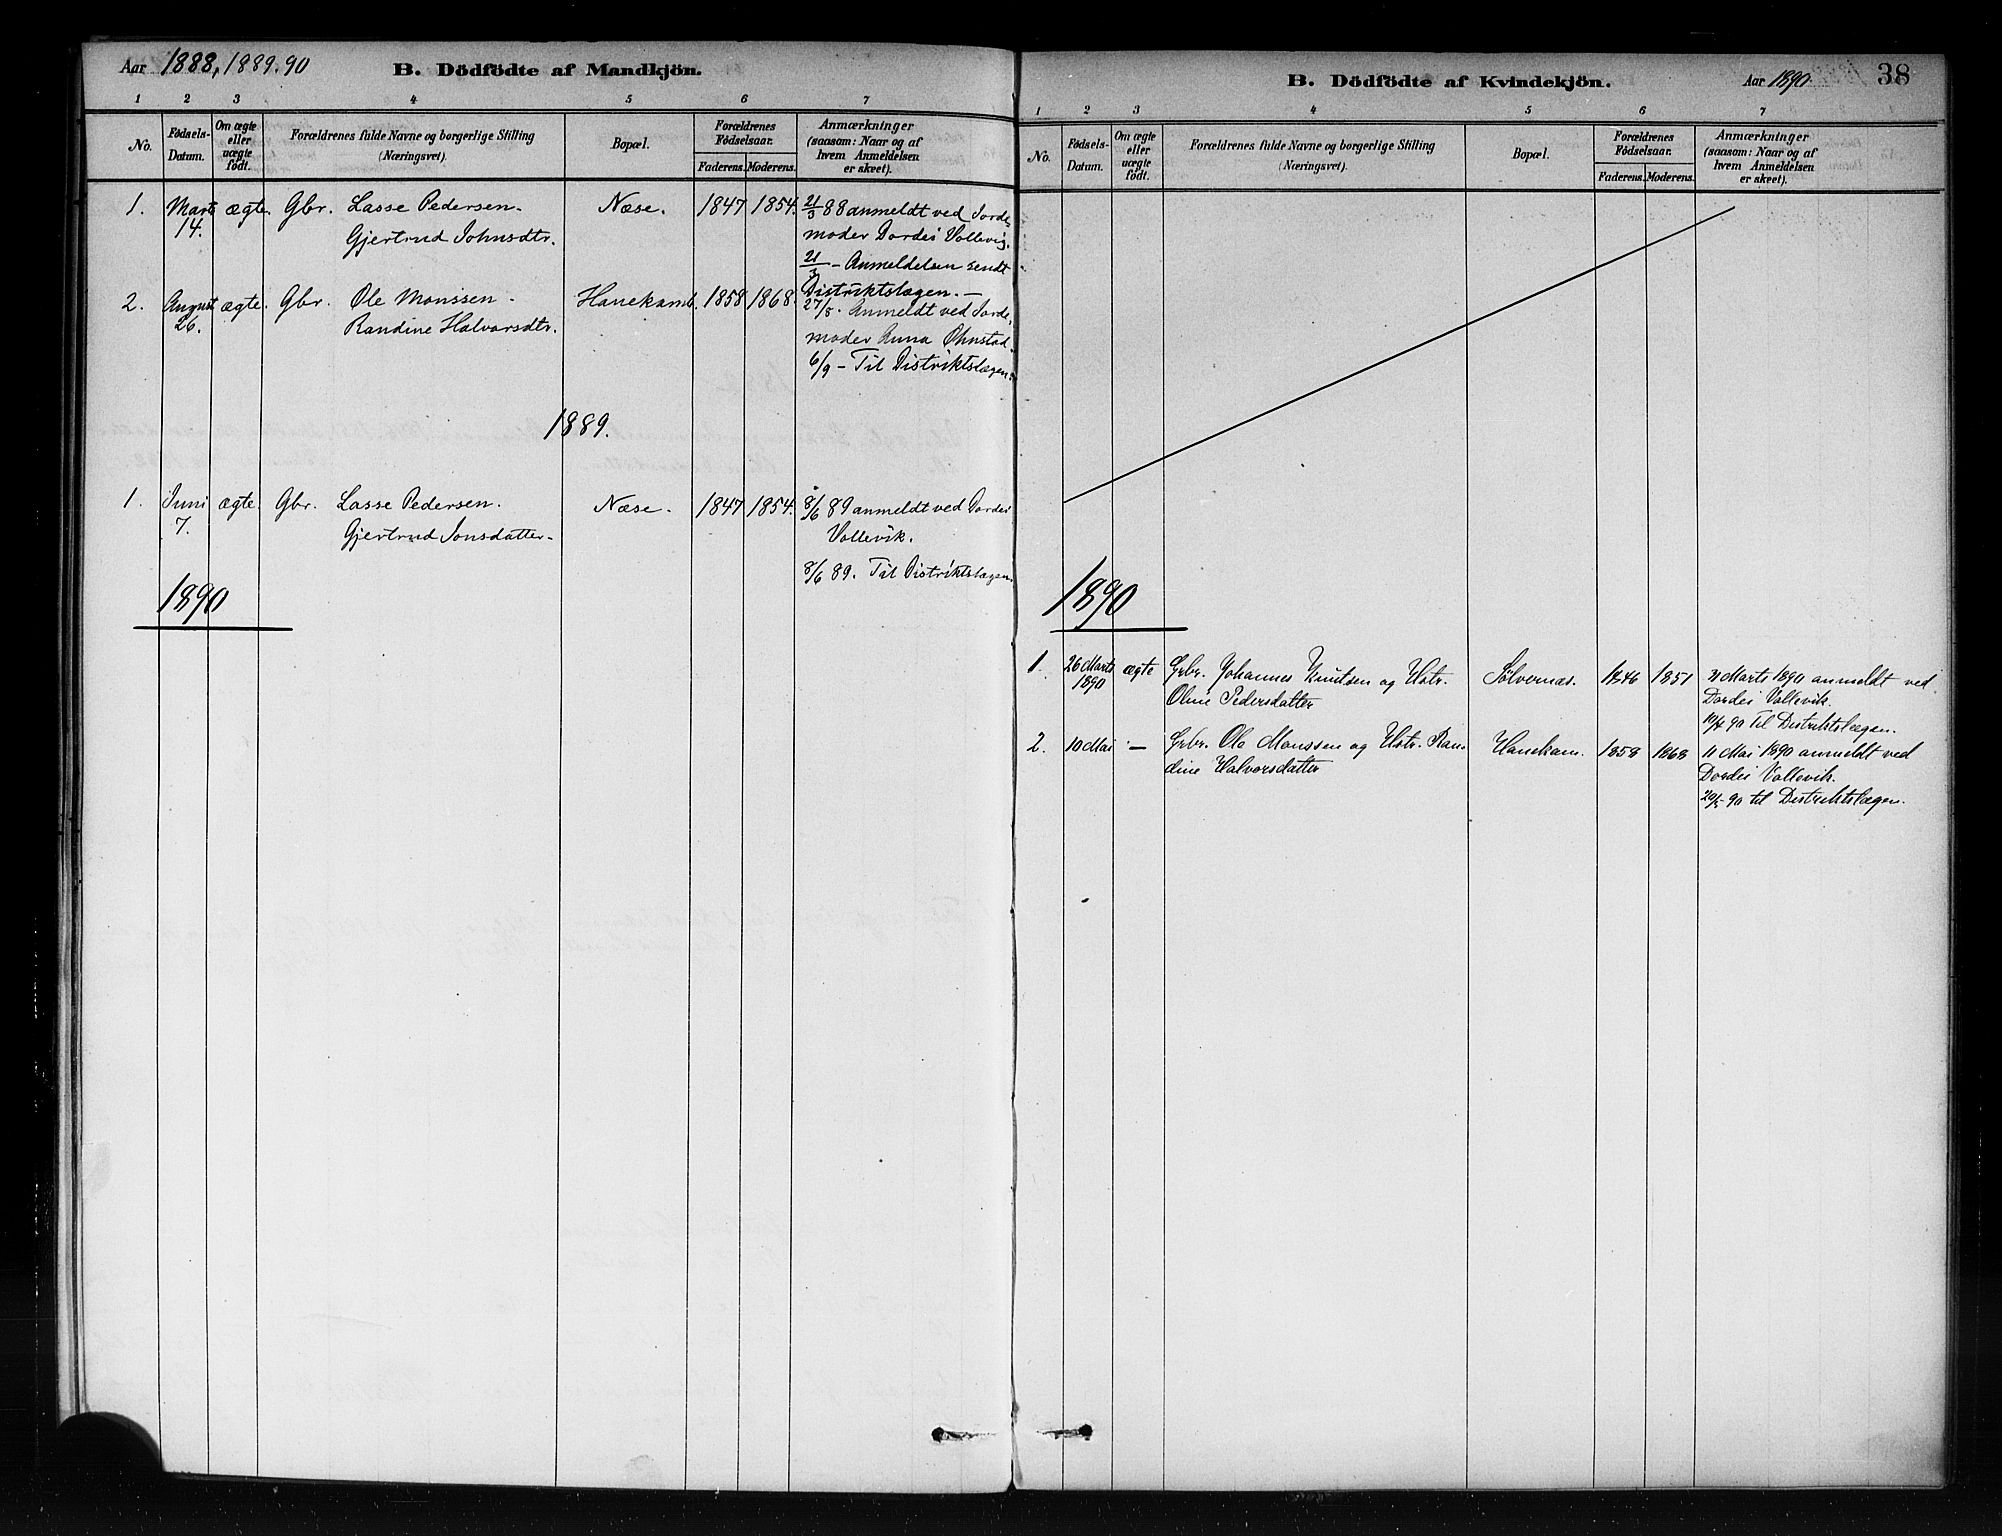 Aar 1888, 1889. 90
B. Dödfödte af Mandkjön.
1 2 3 4 5 6 7
No.
Fødsels-
Datum.
Om ægte
eller
uægte
født.
Forældrenes fulde Navne og borgerlige Stilling
(Næringsvei).
Bopæl.
Forældrenes
Fødselsaar.
Faderens. Moderens.
Anmærkninger
(saasom: Naar og af
hvem Anmeldelsen
er skeet).
1. Marts ægte. Gbr. Lasse Pedersen. Næse. 1847 1854. 21/3 88 anmeldt ved Jorde-
14. Gjertrud Johnsdtr. moder Dordei Vollevig.
21/3 - Anmeldelsen sendt
Distriktslægen. -
2. August ægte. Gbr. Ole Monssen - Hanekamb. 1858 1868. 27/8. Anmeldt ved Jorde-
26. Randine Halvorsdtr. moder Anna Ohnstad
6/9 - Til Distriktslægen.
1889.
1. Juni ægte. Gbr. Lasse Pedersen. Næse. 1847 1854. 8/6 89 anmeldt ved Dordei
7. Gjertrud Jonsdatter. Vollevik.
8/6 89. Til Distriktslægen.
1890
B. Dödfödte af Kvindekjön.
Aar 1890
38
1 2 3 4 5 6 7
No.
Fødsels-
Datum.
Om ægte
eller
uægte
født.
Forældrenes fulde Navne og borgerlige Stilling
(Næringsvei).
Bopæl.
Forældrenes
Fødselsaar.
Faderens. Moderens.
Anmærkninger
(saasom: Naar og af
hvem Anmeldelsen
er skeet).
1890
1. 26 Marts ægte Grbr. Johannes Knutsen og Hstr. Sølvernæs. 1846 1851 Marts 1890 anmeldt ved
1890 Oline Pedersdatter Dordei Vollevik.
90 Til Distriktslægen.
2. 10 Mai - Grbr. Ole Monssen og Hstr. Ran- Hanekam. 1858 1868 11 Mai 1890 anmeldt ved
dine Halvorsdatter Dordei Vollevik.
20/5 90 til Distriktslægen.